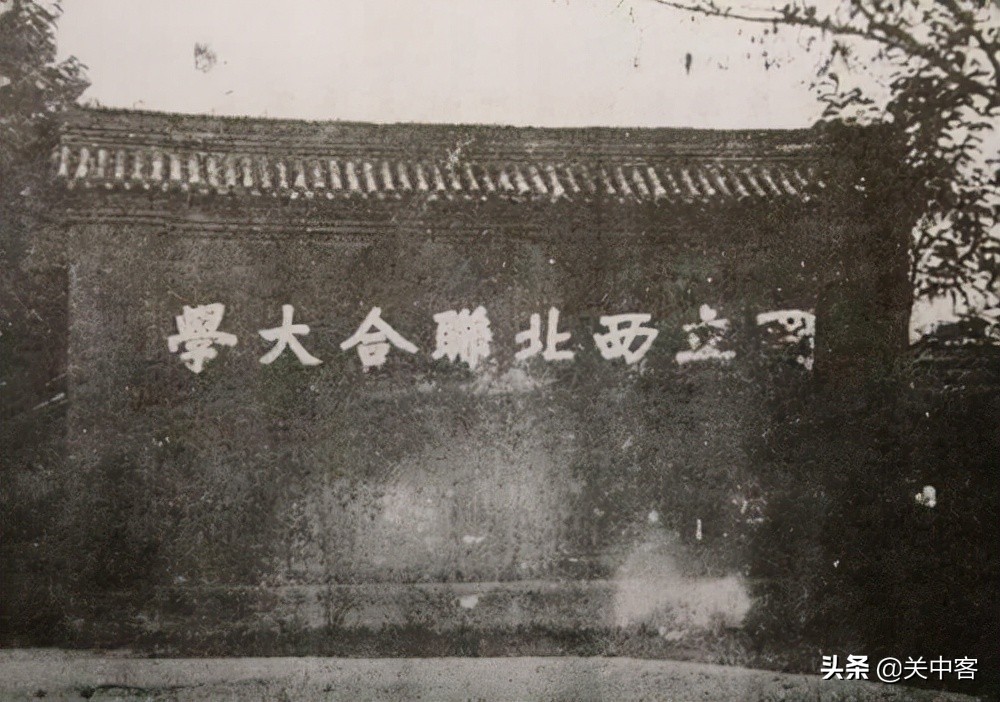 國立西北聯合大學
头条 @关中客